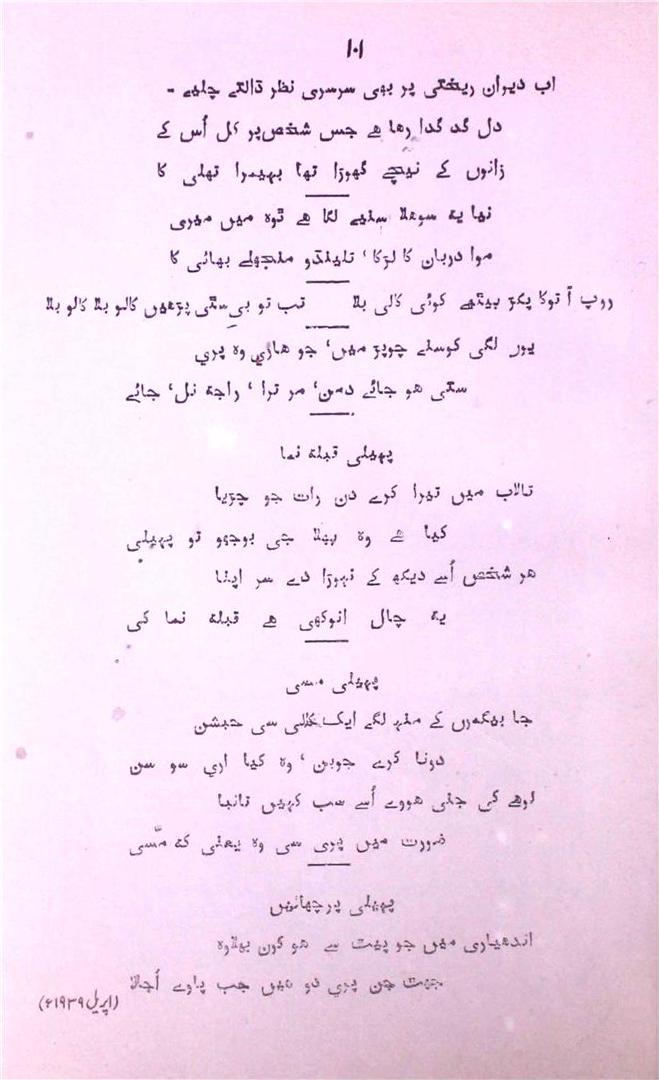 ۱۰۱
اب دیوان ریختی پر بھی سرسری نظر ڈالتے چلیے -
دل گد گدا رہا ہے جس شخص پر کل اُس کے
زانوں کے نیچے گھوڑا تھا بھیمرا تھلی کا
نیا یہ سوجھلا سنیے لگا ہے ٹوہ میں میری
موا دربان کا لڑکا ‘ تلیلدو منجھلے بھائی کا
روپ آ توکا پکڑ بیٹھے کوئی کالی بلا تب تو بی ستی پڑھیں کالو بلا کالو بلا
یوں لگی کوسنے چوپڑ میں‘ جو ھاری وہ پری
ستی ھو جائے دمن‘ مر ترا ‘ راجہ نل‘ جائے
پہیلی قبلہ نما
تالاب میں تیرا کرے دن رات جو چڑیا
کیا ہے وہ بھلا جی بوجھو تو پہیلی
ھر شخص اُسے دیکھ کے نہوڑا دے سر اپنا
یہ چال انوکھی ہے قبلہ نما کی
پہیلی مسی
جا بیگموں کے منہ لگے ایک کالی سی حبشن
دونا کرے جوبن ‘ وہ کیا اری سو سن
لوھے کی جنی ھووے اُسے سب کہیں تانبا
ضرورت میں پری سی وہ یعنی کہ مسّی
پہیلی پرچھائیں
اندھیاری میں جو پیت سے ھو گون بھلاوہ
جھٹ جن پری دو ھیں جب پاوے اُجالا
(اپریل ۱۹۳۹ء)